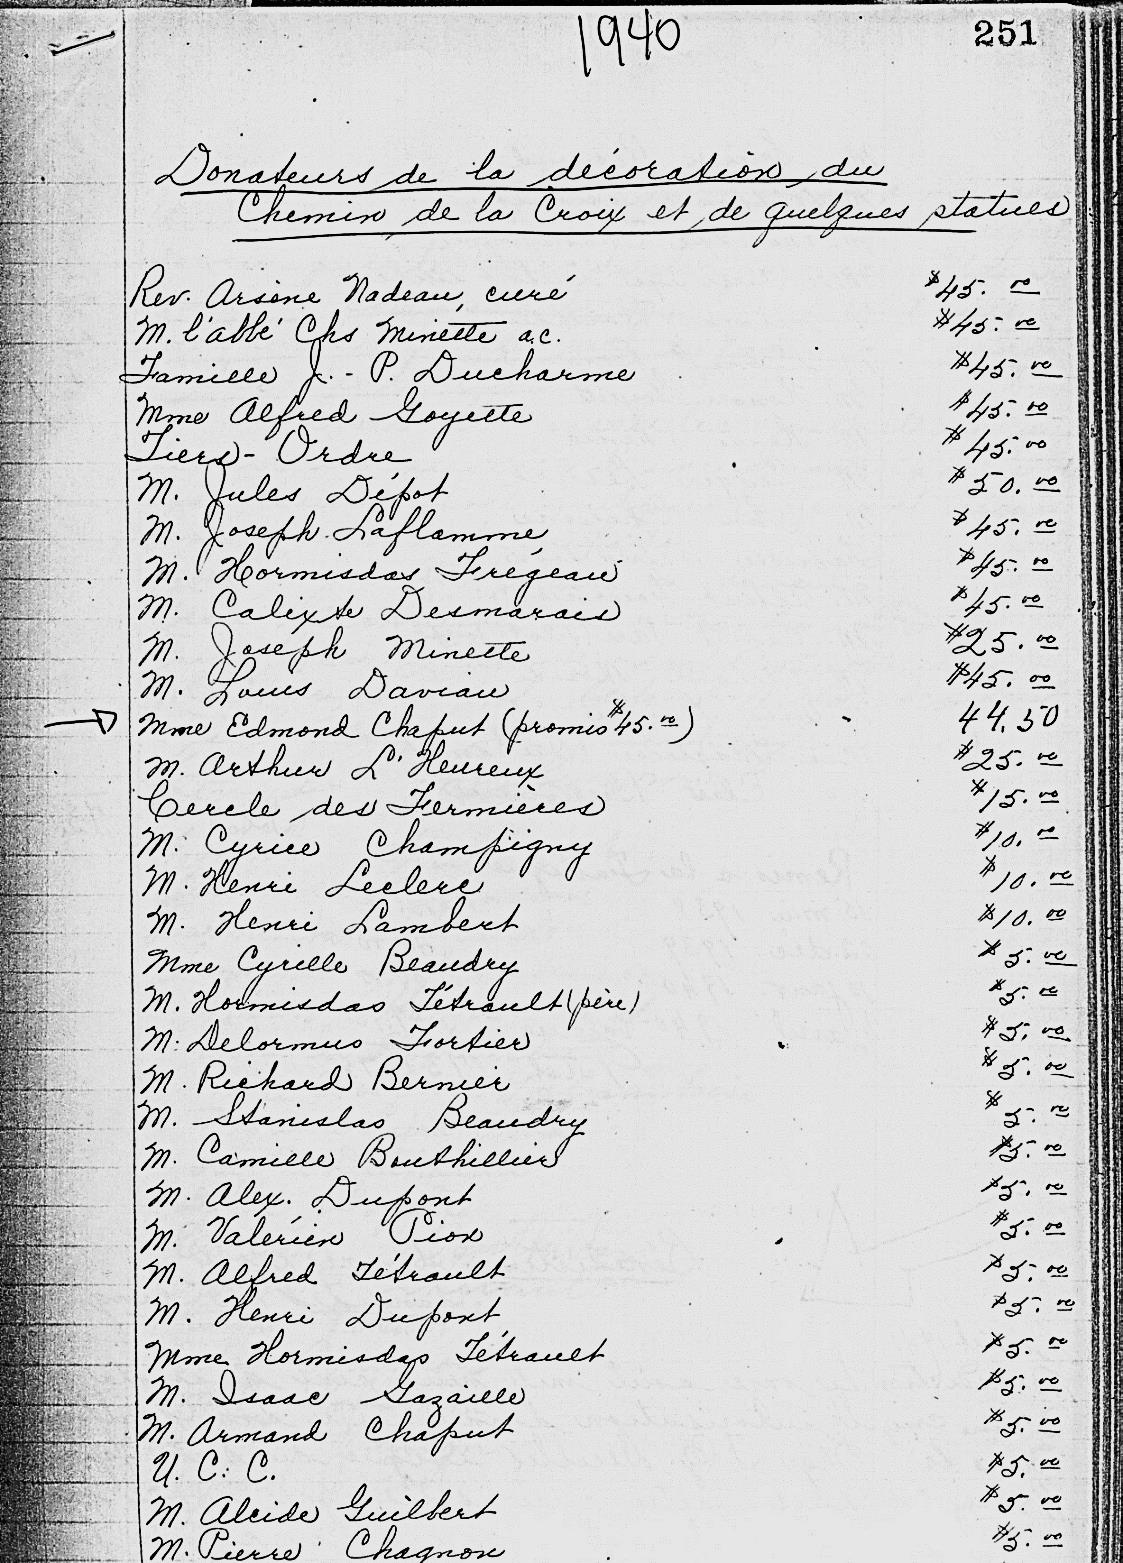 1940
251
Donateurs de la décoration du
Chemin de la Croix et de quelques statues
Rev. Arsène Nadeau, curé $45.00
M. l'abbé Chs Minette a.c. $45.00
Famille J.-P. Ducharme $45.00
Mme Alfred Goyette $45.00
Tiers-Ordre $45.00
M. Jules Dépot $50.00
M. Joseph Laflamme $45.00
M. Hormisdas Frégeau $45.00
M. Calixte Desmarais $45.00
M. Joseph Minette $25.00
M. Louis Daviau $45.00
Mme Edmond Chaput (promis $45.00) 44.50
M. Arthur L'Heureux $25.00
Cercle des Fermières $15.00
M. Cyrice Champigny $10.00
M. Henri Leclerc $10.00
M. Henri Lambert $10.00
Mme Cyrille Beaudry $5.00
M. Hormisdas Tétrault (père) $5.00
M. Delormus Fortier $5.00
M. Richard Bernier $5.00
M. Stanislas Beaudry $5.00
M. Camille Bouthillier $5.00
M. Alex. Dupont $5.00
M. Valérien Pion $5.00
M. Alfred Tétrault $5.00
M. Henri Dupont $5.00
Mme Hormisdas Tétrault $5.00
M. Isaac Gazaille $5.00
M. Armand Chaput $5.00
U. C. C. $5.00
M. Alcide Guilbert $5.00
M. Pierre Chagnon $5.00